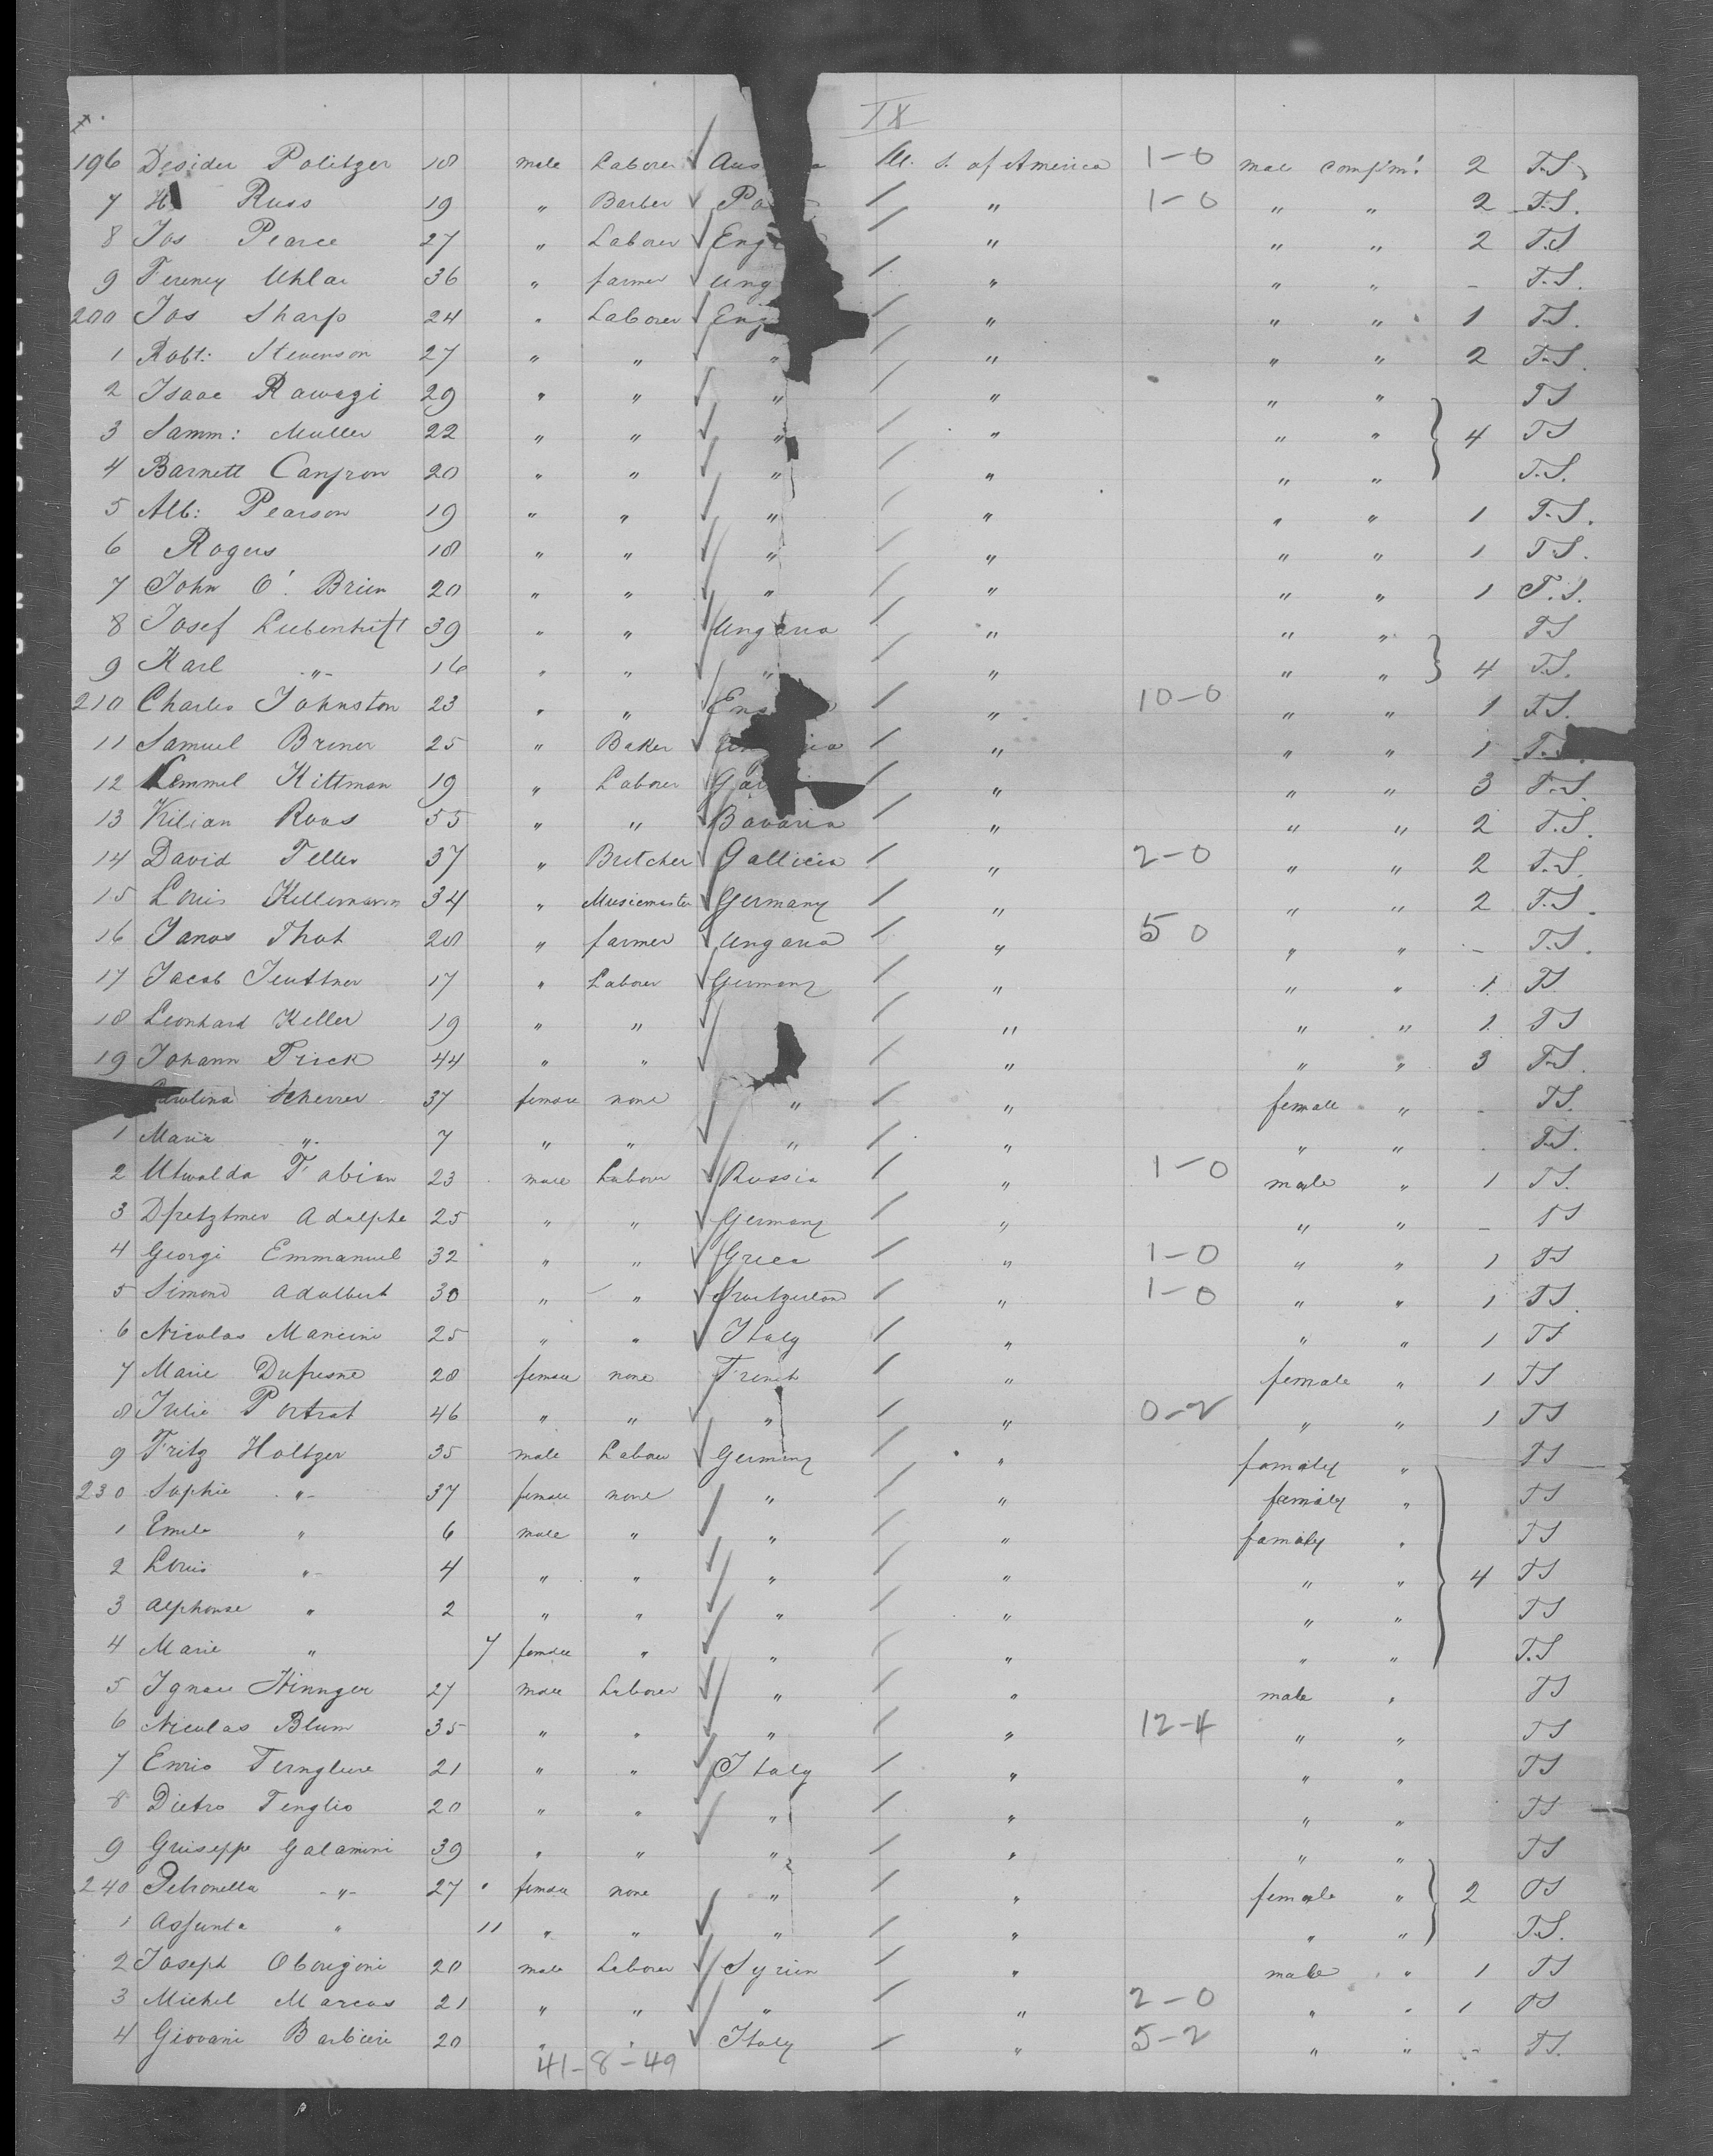 IX
196 Desider Politzer 18 male Laborer Aus U. S. of America 1-0 male compm! 2 T.S.
7 H Russ 19 " Barber Po " 1-0 " " 2 T.S.
8 Jos Pearce 27 " Laborer Eng " " " 2 T.S
9 Ferency Uhlar 36 " farmer Ung " " " - T.S.
200 Jos Sharp 24 " Laborer Eng " " " 1 T.S.
1 Robt: Stevenson 27 " " " " " " 2 T.S.
2 Isaac Rawagi 29 " " " " " " TS
3 Samm: Muller 22 " " " " " " 4 TS
4 Barnett 20 " " " " " " T.S.
5 Alb: Pearson 19 " " " " " " 1 T.S.
6 Rogers 18 " " " " " " 1 T.S.
7 John O'. Brien 20 " " " " " " 1 T.S.
8 Josef 39 " " Ungaria " " " TS
9 Karl " 16 " " " " " " 4 T.S.
210 Charles Johnston 23 " " Eng " 10-0 " " 1 T.S.
11 Samuel Briner 25 " Baker Un ia " " " 1 T.S.
12 Lemmel Kittman 19 " Laborer Ga " " " 3 T.S.
13 Kilian Roos 55 " " Bavaria " " " 2 T.S.
14 David Teller 37 " Butcher Gallicia " 2-0 " " 2 T.S.
15 Louis Kellermann 34 " Musicmaster Germany " " " 2 T.S.
16 Janos Thot 28 " farmer Ungaria " 5 0 " " - T.S.
17 Jacob 17 " Laborer Germany " " " 1 TS
18 Leonhard Keller 19 " " " " " 1 TS
19 Johann Frick 44 " " " " " 3 T.S.
Carolina Scherrer 37 female none " " female " TS.
1 Maria " 7 " " " " " " T.S.
2 Utwalda Fabian 23 male Laborer Russia " 1-0 male " 1 TS.
3 Adolphe 25 " " Germany " " " - TS
4 Georgi Emmanuel 32 " " Greca " 1-0 " " 1 TS
5 Simond Adalbert 30 " " Switzerland " 1-0 " " 1 TS.
6 Nicolas Mancini 25 " " Italy " " " 1 TS
7 Marie Dufresne 28 female none French " female " 1 TS
8 Julie Portrat 46 " " " " 0-2 " " 1 TS
9 Fritz Holtzer 35 male Laborer Germany " family " TS
230 Sophie " 37 female none " " family " TS
1 Emile " 6 male " " " family " TS
2 Louis " 4 " " " " " " 4 TS
3 Alphonse " 2 " " " " " " TS
4 Marie " 7 female " " " " " T.S
5 Ignace Hinnger 27 male Laborer " " male " TS
6 Nicolas Blum 35 " " " " 12-4 " " TS
7 Enrio 21 " " Italy " " " TS
8 Pietro Tenglio 20 " " " " " " TS
9 Guiseppe Galamini 39 " " " " " " TS
240 Petronella " 27 female none " " female " 2 TS
1 Assunta " 11 " " " " " " T.S.
2 Joseph Oborigoni 20 male Laborer Syrien " male " 1 TS
3 Michel Marcus 21 " " " " 2-0 " " 1 TS
4 Giovani Barbieri 20 " " Italy " 5-2 " " - TS.
41-8-49